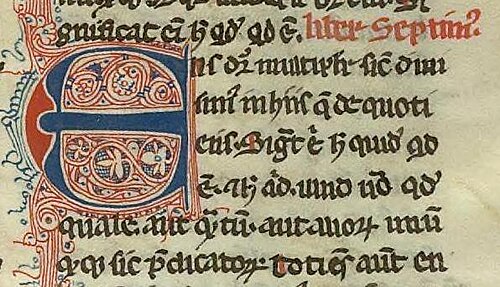 gnificat eī h qd' qd ē. liber Septim⁹
Ens dr̄ multiplr̄ sic̄ diui
sim⁹ in hiis q̄ de quoti
ens. Sigt̄ ē h quid qd
ē. ⁊ h ad. unū u° qd'
quale. aut̄ q̄tum. aut alioꝝ unū
qq sic p̄dicatoꝝ. totiens aut̄ en